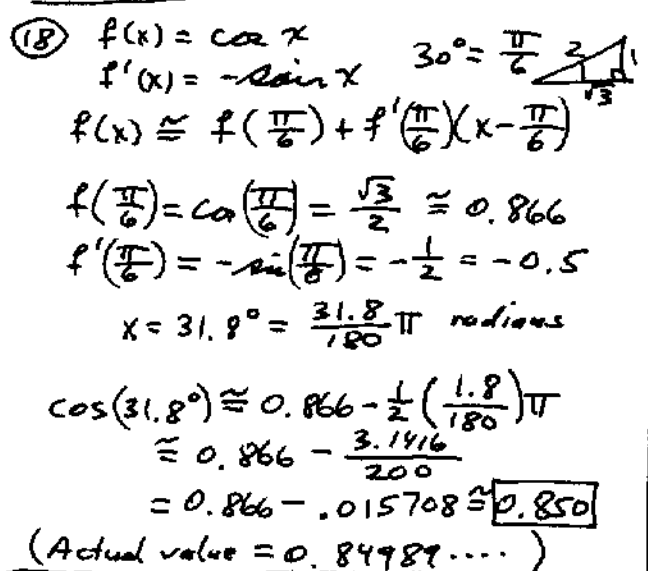 (18) f(x) = cos x
f'(x) = -sin x
30° = π/6 2 1 √3
f(x) ≅ f(π/6) + f'(π/6)(x - π/6)
f(π/6) = cos(π/6) = √3/2 ≅ 0.866
f'(π/6) = -sin(π/6) = -1/2 = -0.5
x = 31.8° = 31.8/180 π radians
cos(31.8°) ≅ 0.866 - 1/2 (1.8/180)π
≅ 0.866 - 3.1416/200
= 0.866 - .015708 ≅ 0.850
(Actual value = 0.84989....)